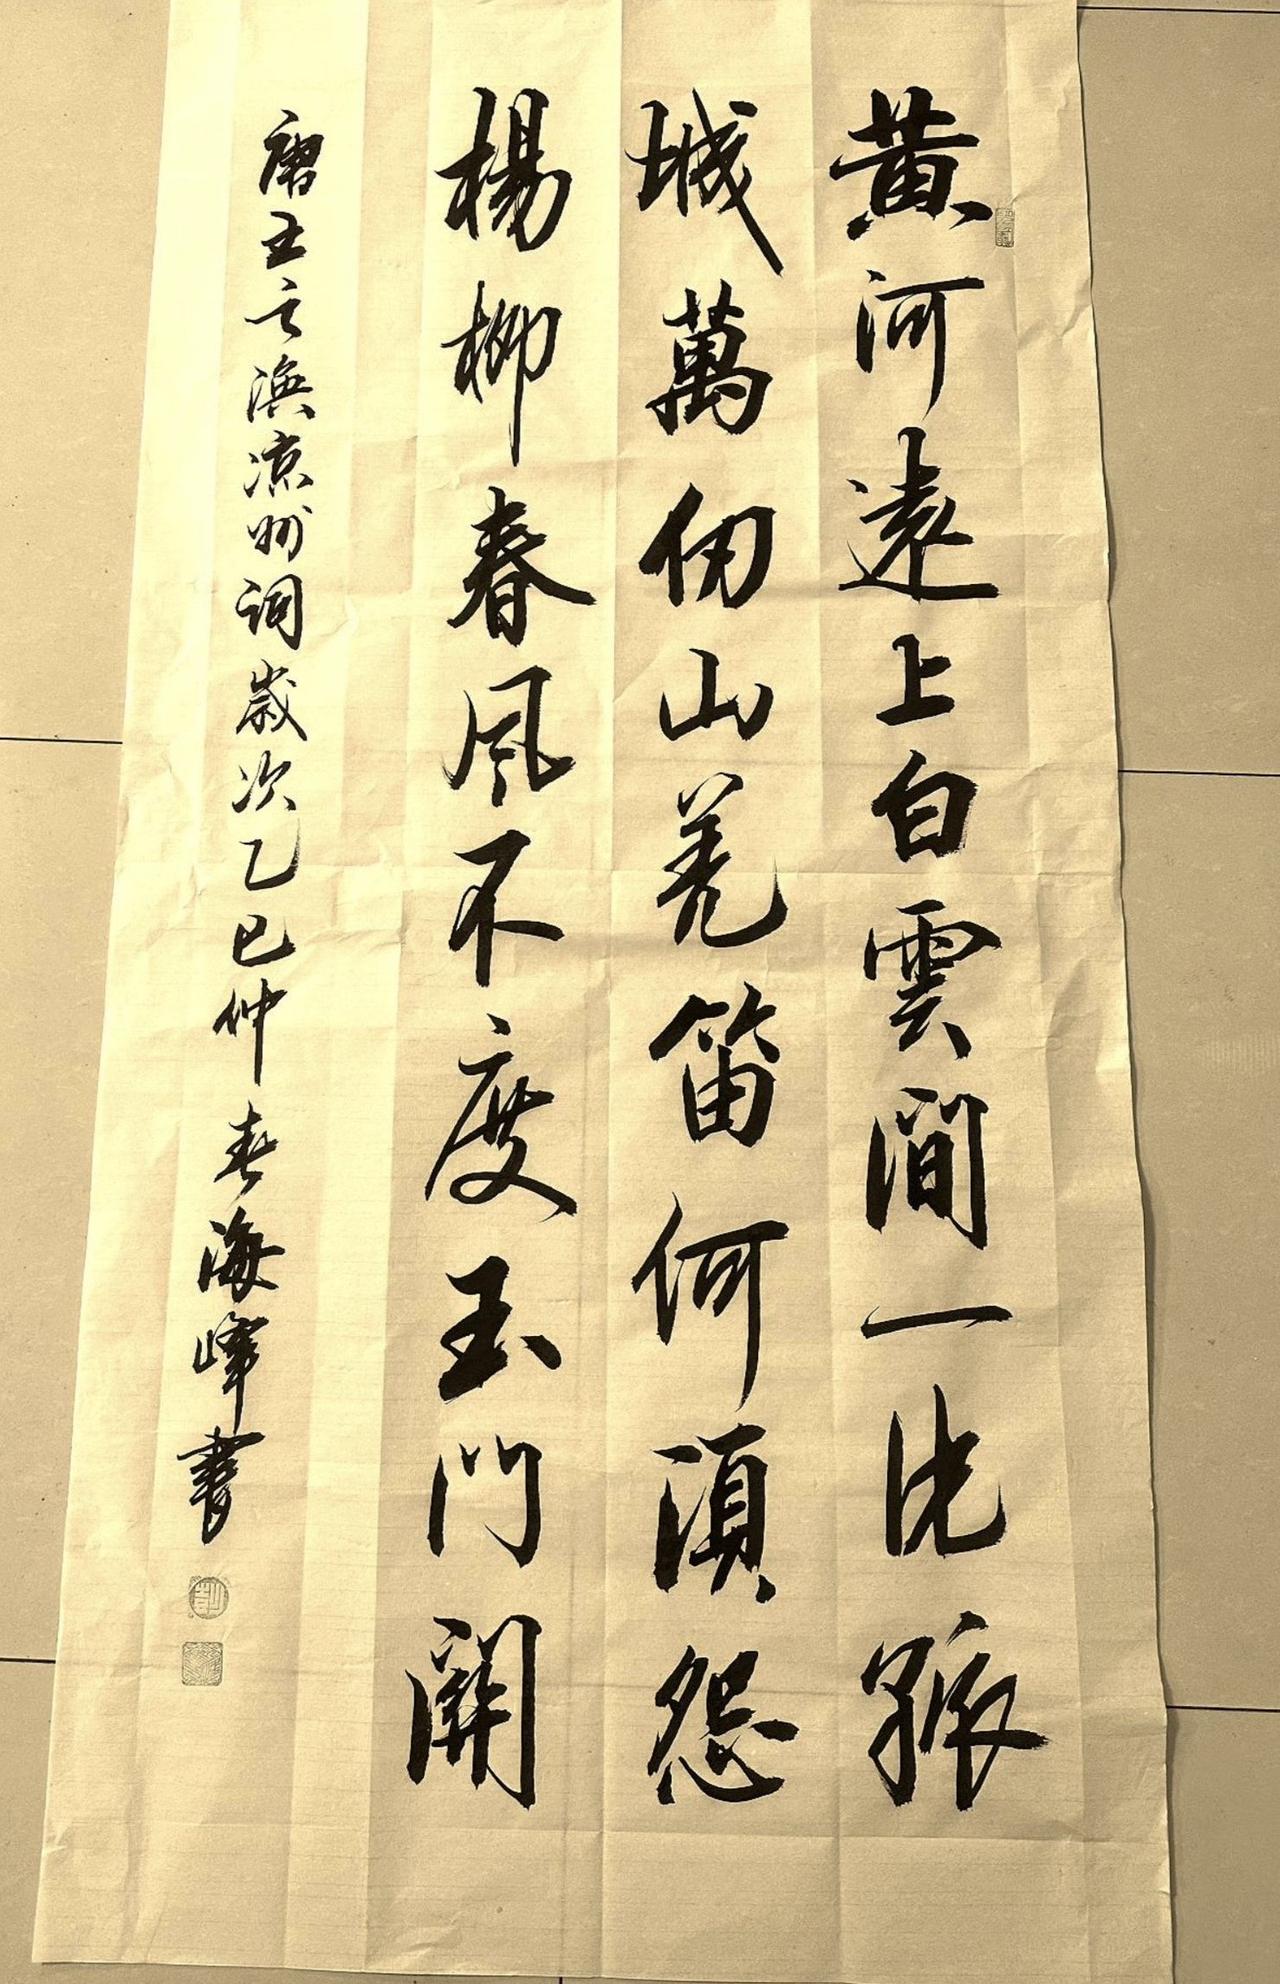 黃河遠上白雲間一片孤
城萬仞山羌笛何須怨
楊柳春風不度玉門關
唐王之渙凉州詞歲次乙巳仲春海峰書